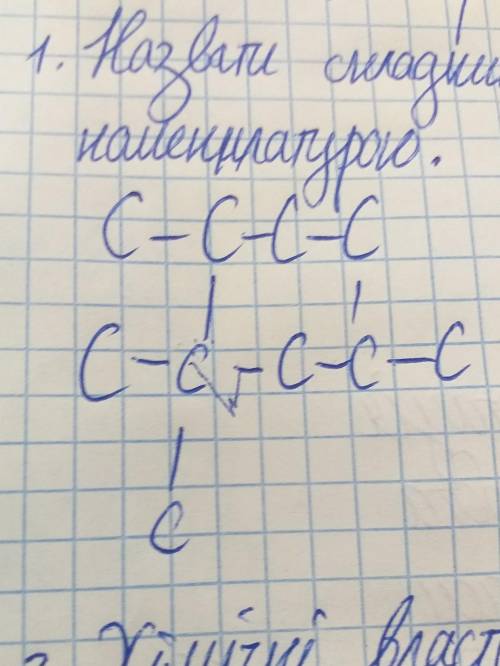 1. Назвати складні
номенклатурою.
C - C - C - C
| |
C - C - C - C - C
|
C
Хімічні власт